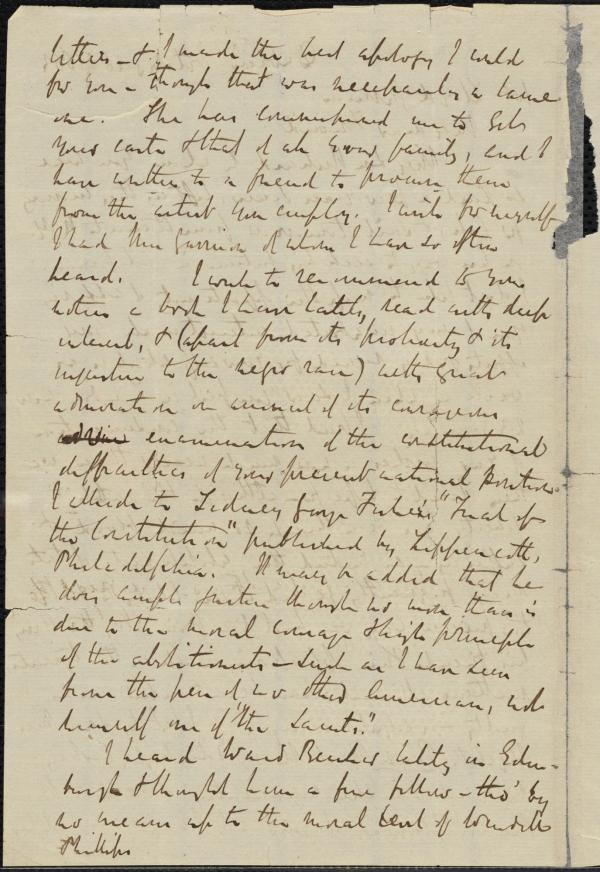 letters – & I made the best apology I could
for you – though that was necessarily a lame
one. She has commissioned me to get
your carte & that of all your family, and I
have written to a friend to procure them
from the artist you employ. I wish for myself
I had Mrs Garrison of whom I have so often
heard. I wish to recommend to your
notice a book I have lately read with deep
interest, & (apart from its prolixity & its
injustice to the negro race) with great
admiration on account of its courageous
examination of the constitutional
difficulties of your present national position.
I allude to Sidney George Fisher's "Trial of
the Constitution" published by Lippencott,
Philadelphia. It may be added that he
does ample justice though no more than is
due to the moral courage & high principle
of the abolitionists – such as I have seen
from the pen of no other American, not
himself one of "the Saints."
I heard Ward Beecher lately in Edin-
burgh & thought him a fine fellow – tho' by
no means up to the moral level of Wendell
Phillips